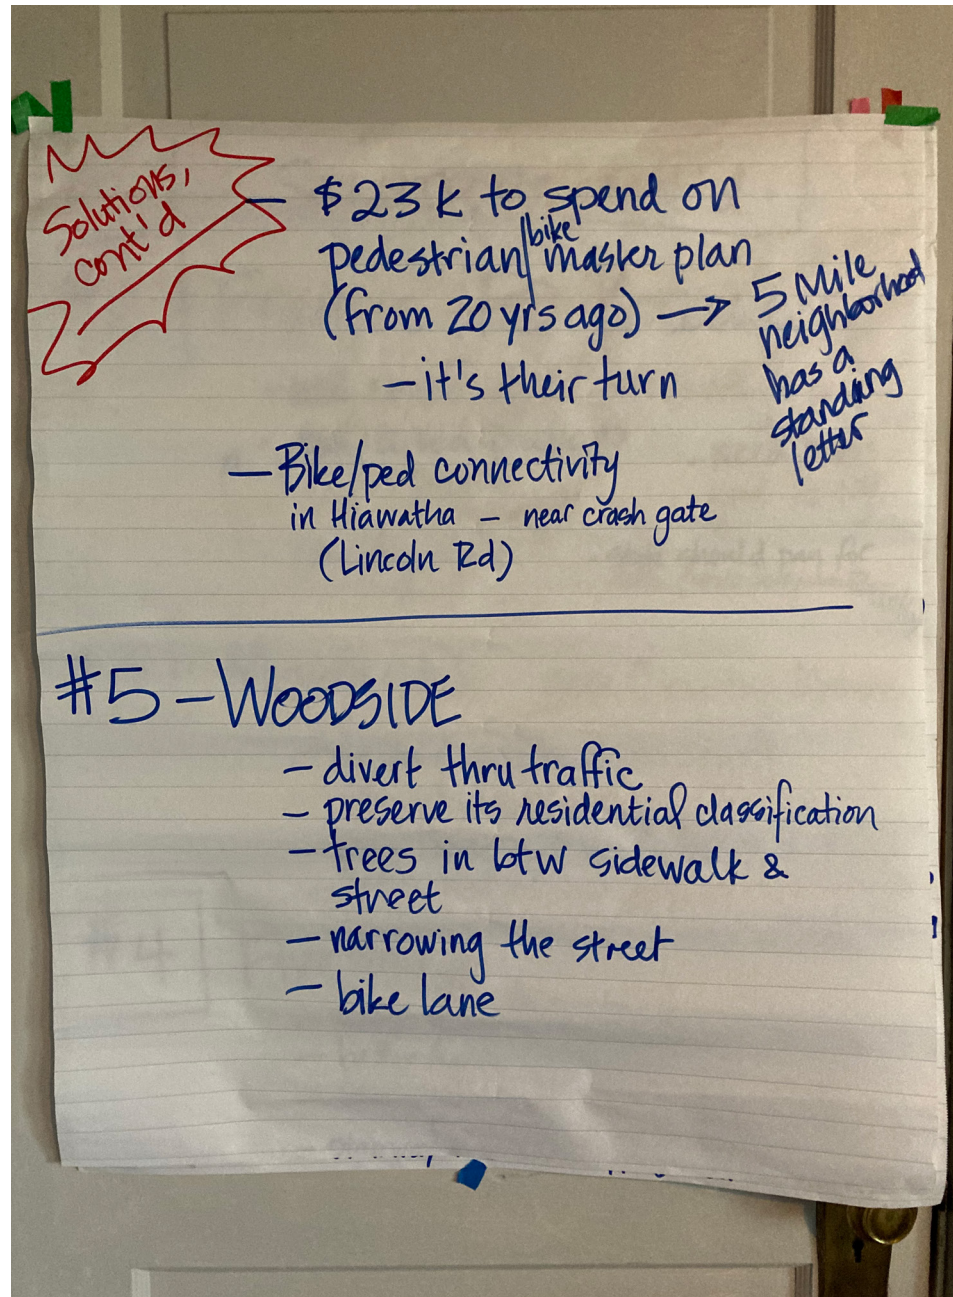 Solutions,
cont'd
– $23k to spend on
pedestrian/bike master plan
(from 20 yrs ago) → 5 Mile
neighborhood
has a
standing
letter
– it's their turn
– Bike/ped connectivity
in Hiawatha – near crash gate
(Lincoln Rd)
#5 – WOODSIDE
– divert thru traffic
– preserve its residential classification
– trees in btw sidewalk &
street
– narrowing the street
– bike lane
should pay for
#4